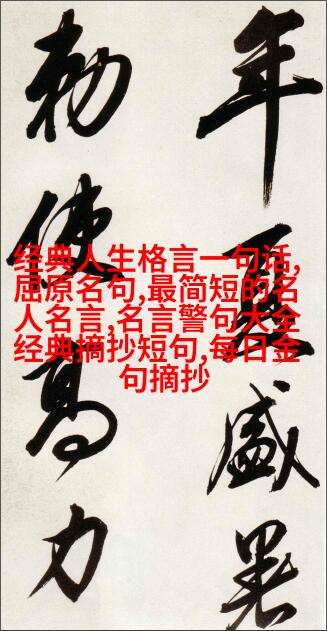 年夏盛暑
勅使高力
经典人生格言一句话,
屈原名句,最简短的名
人名言,名言警句大全
经典摘抄短句,每日金
句摘抄